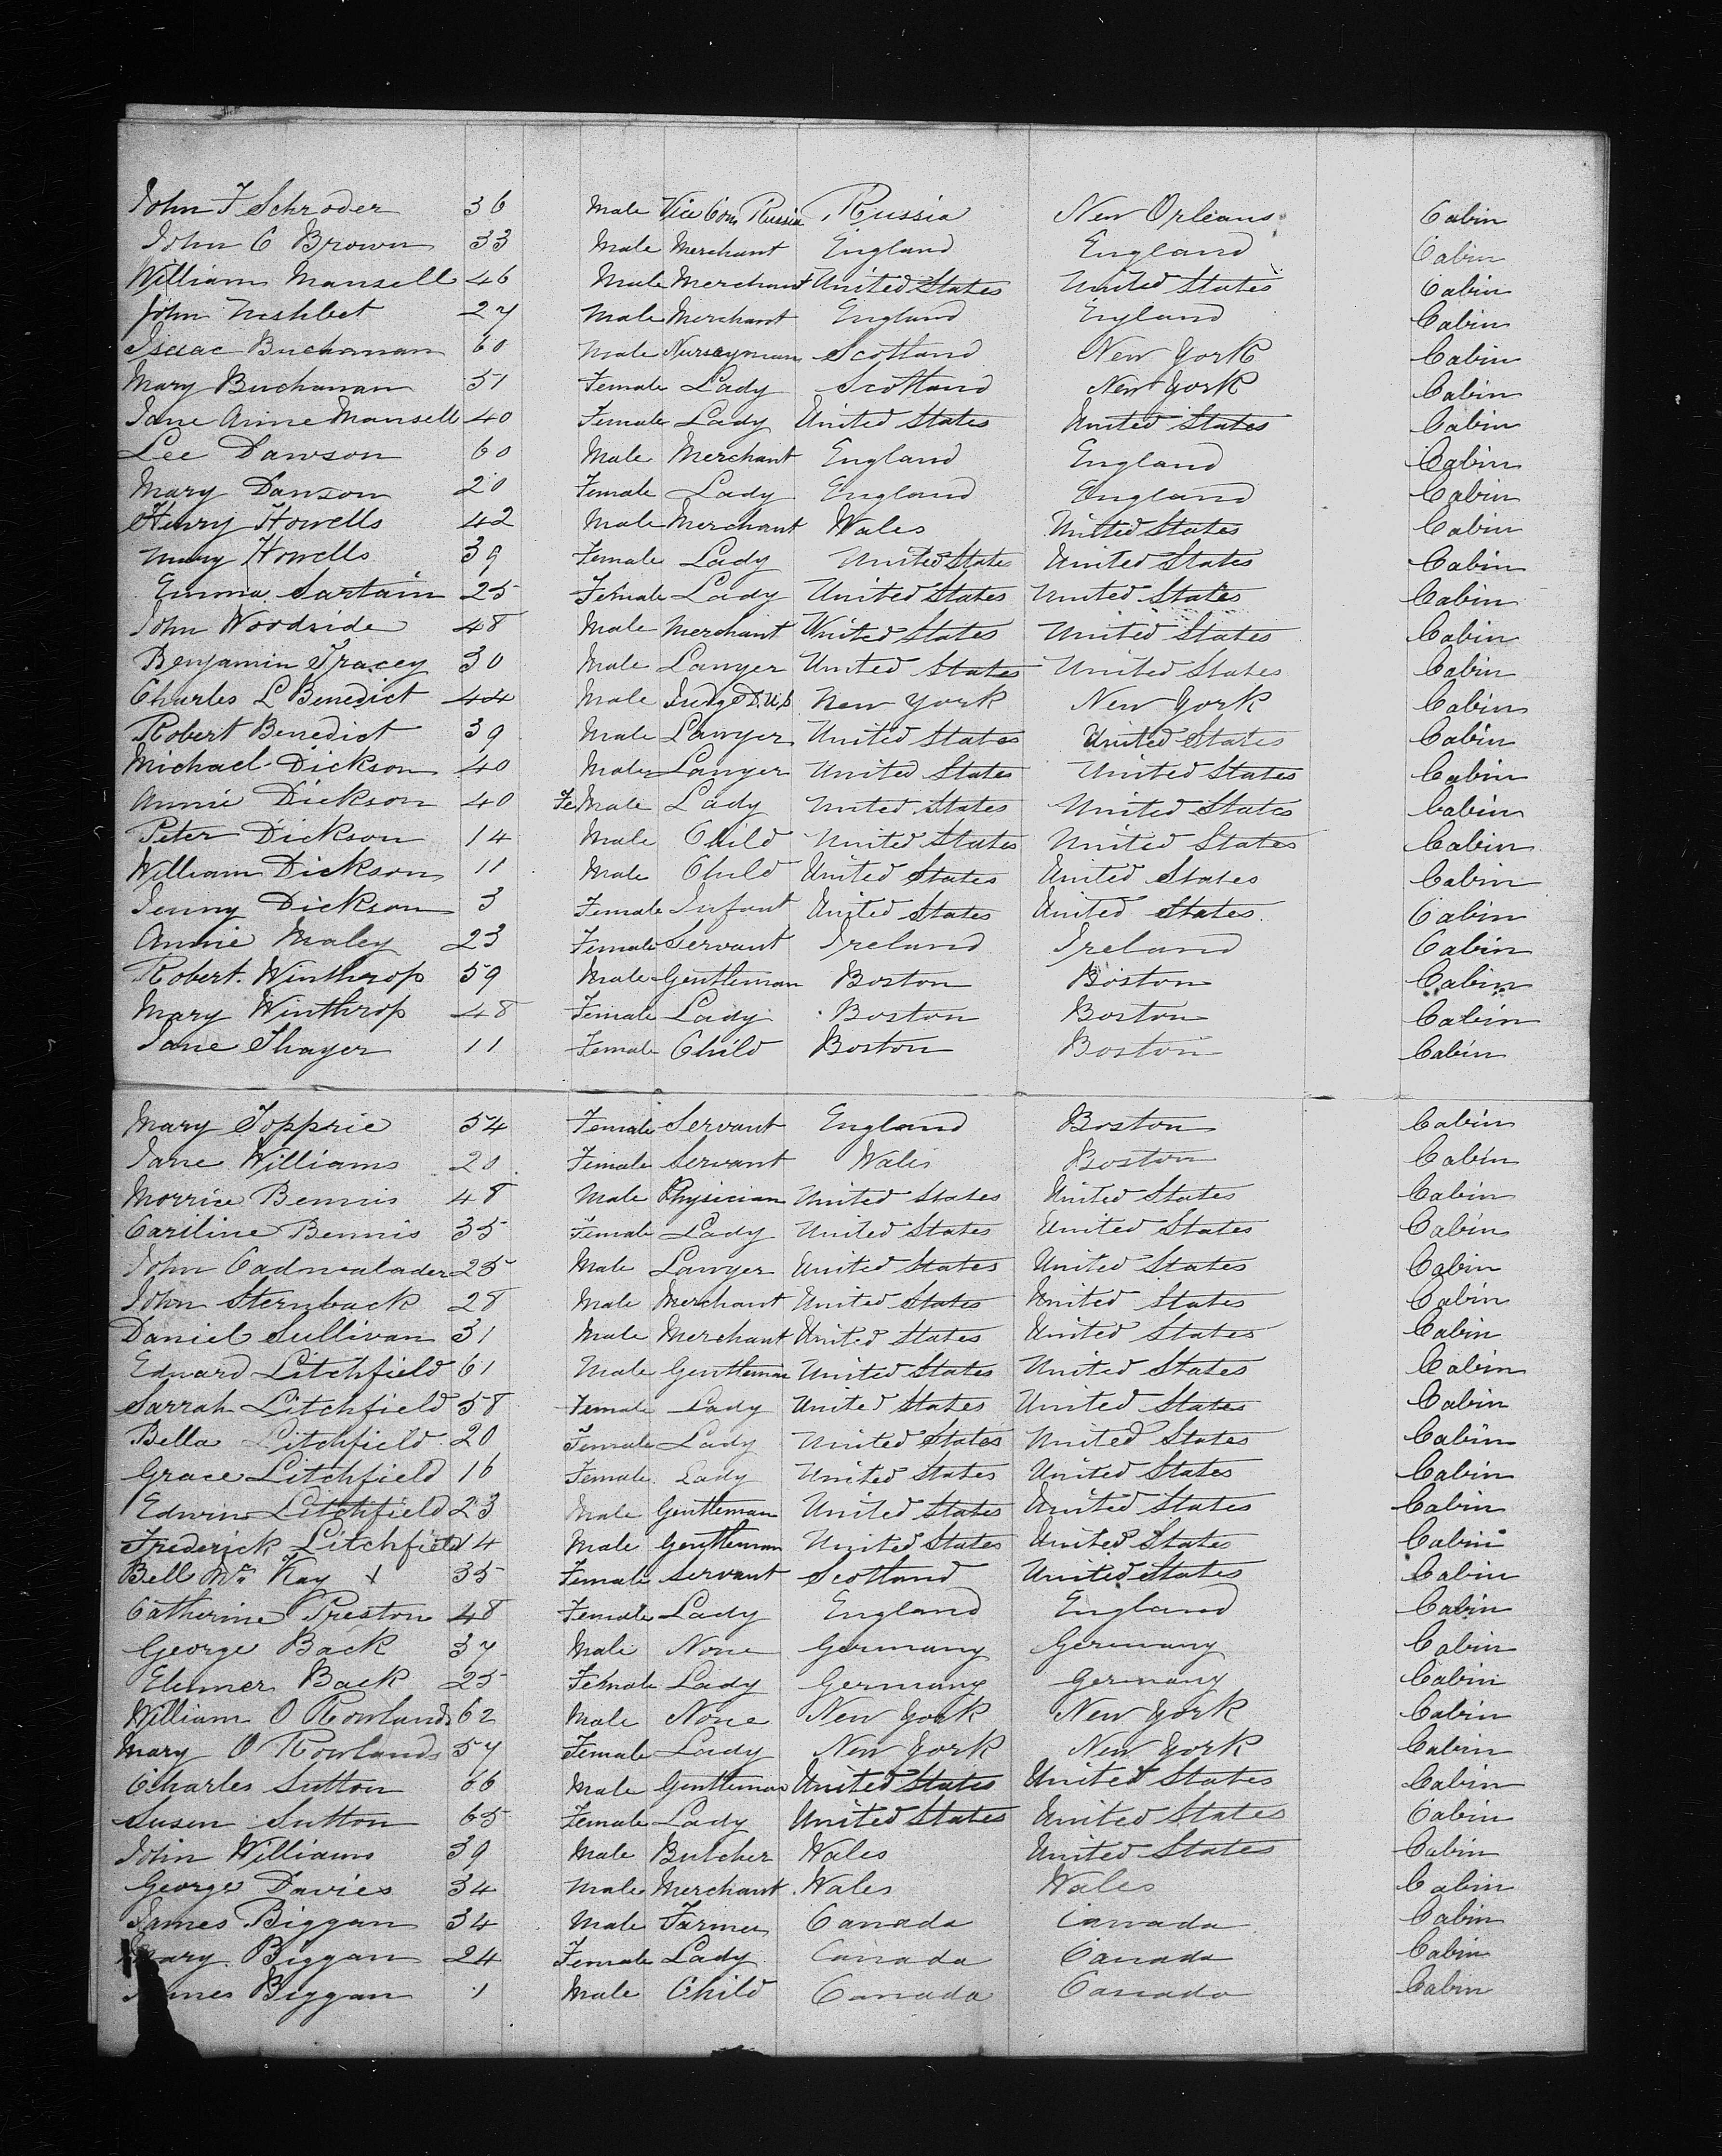 John F Schroder 36 Male Vice Con Russia Russia New Orleans Cabin
John C Brown 33 Male Merchant England England Cabin
William Mansell 46 Male Merchant United States United States Cabin
John Neshbet 27 Male Merchant England England Cabin
Isaac Buchanan 60 Male Nurseyman Scotland New York Cabin
Mary Buchanan 51 Female Lady Scotland New York Cabin
Jane Anne Mansell 40 Female Lady United States United States Cabin
Lee Dawson 60 Male Merchant England England Cabin
Mary Dawson 20 Female Lady England England Cabin
Henry Howells 42 Male Merchant Wales United States Cabin
Mary Howells 39 Female Lady United States United States Cabin
Emma Sartain 25 Female Lady United States United States Cabin
John Woodside 48 Male Merchant United States United States Cabin
Benjamin Tracey 30 Male Lawyer United States United States Cabin
Charles L Benedict 44 Male Judge D.U.S. New York New York Cabin
Robert Benedict 39 Male Lawyer United States United States Cabin
Michael Dickson 40 Male Lawyer United States United States Cabin
Annie Dickson 40 FeMale Lady United States United States Cabin
Peter Dickson 14 Male Child United States United States Cabin
William Dickson 11 Male Child United States United States Cabin
Jenny Dickson 3 Female Infant United States United States Cabin
Annie Maley 23 Female Servant Ireland Ireland Cabin
Robert Winthrop 59 Male Gentleman Boston Boston Cabin
Mary Winthrop 48 Female Lady Boston Boston Cabin
Jane Thayer 11 Female Child Boston Boston Cabin
Mary Topprie 54 Female Servant England Boston Cabin
Jane Williams 20 Female Servant Wales Boston Cabin
Morrice Bennis 48 Male Physician United States United States Cabin
Cariline Bennis 35 Female Lady United States United States Cabin
John Cadwalader 25 Male Lawyer United States United States Cabin
John Sternback 28 Male Merchant United States United States Cabin
Daniel Sullivan 31 Male Merchant United States United States Cabin
Edward Litchfield 61 Male Gentleman United States United States Cabin
Sarrah Litchfield 58 Female Lady United States United States Cabin
Bella Litchfield 20 Female Lady United States United States Cabin
Grace Litchfield 16 Female Lady United States United States Cabin
Edwin Litchfield 23 Male Gentleman United States United States Cabin
Frederick Litchfield 14 Male Gentleman United States United States Cabin
Bell Mc Kay x 35 Female Servant Scotland United States Cabin
Catherine Preston 48 Female Lady England England Cabin
George Back 37 Male None Germany Germany Cabin
Elenner Back 25 Female Lady Germany Germany Cabin
William O Rowlands 62 Male None New York New York Cabin
Mary O Rowlands 57 Female Lady New York New York Cabin
Charles Sutton 66 Male Gentleman United States United States Cabin
Susen Sutton 65 Female Lady United States United States Cabin
John Williams 39 Male Butcher Wales United States Cabin
George Davies 34 Male Merchant Wales Wales Cabin
James Biggan 34 Male Farmer Canada Canada Cabin
Mary Biggan 24 Female Lady Canada Canada Cabin
James Biggan 1 Male Child Canada Canada Cabin